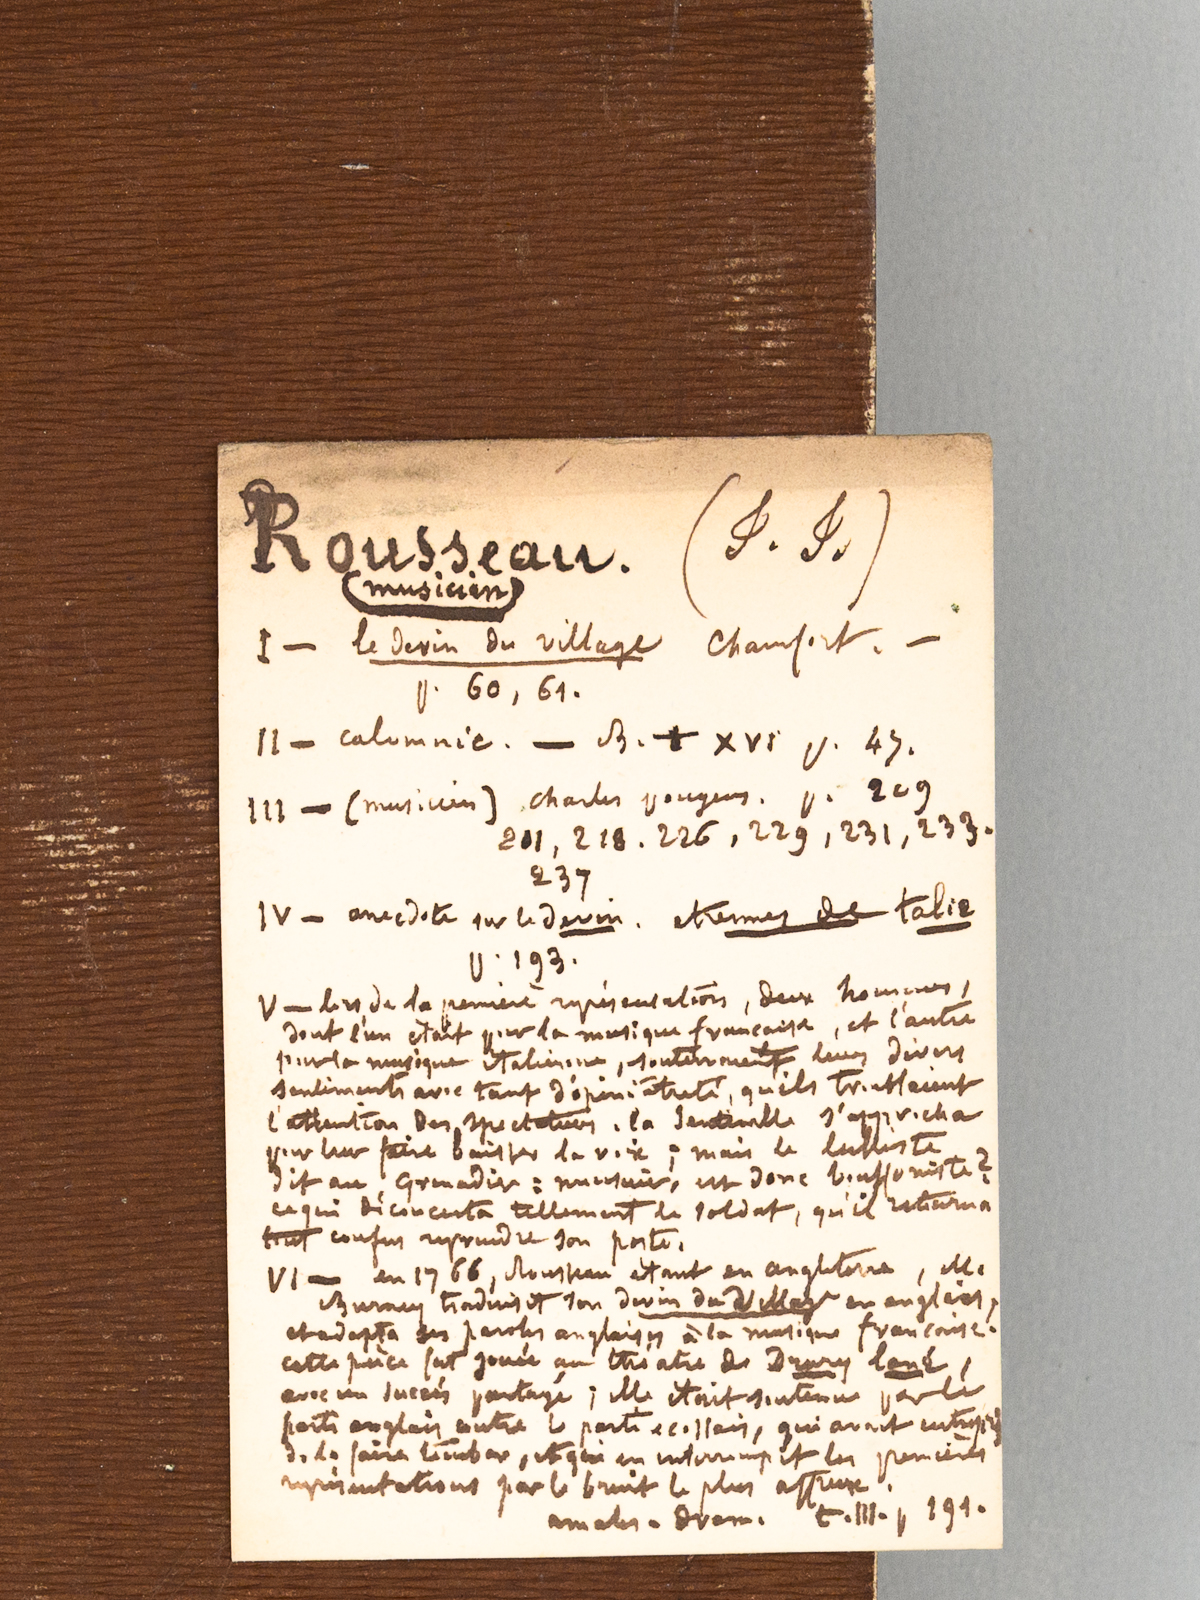 Rousseau. (J. J.)
(musicien)
I — le devin du village Chamfort. —
p. 60, 61.
II — calomnie. — B. t XVI p. 47.
III — (musicien) charles pougens. p. 209
201, 218. 226, 229, 231, 233.
237
IV — anecdote sur le devin. etrennes de talie
p. 193.
V — lors de la première représentation, deux hommes,
dont l'un était pour la musique française, et l'autre
pour la musique italienne, soutenoient leurs divers
sentiments avec tant d'opiniâtreté, qu'ils troublaient
l'attention des spectateurs. la sentinelle s'approcha
pour leur faire baisser la voix ; mais le lulliste
dit au Grenadier : monsieur, est donc bouffoniste ?
ce qui déconcerta tellement le soldat, qu'il retourna
tout confus reprendre son poste.
VI — en 1766, Rousseau étant en angleterre, M.
Burney traduisit son devin du village en anglais,
et adapta ses paroles anglaises à la musique française.
cette pièce fut jouée au théatre de Drury lane,
avec un succès partagé ; elle était soutenue par le
parti anglais contre le parti ecossais, qui avait entrepris
de la faire tomber, et qui en interrompit les premières
représentations par le bruit le plus affreux.
annales. dram. t. III. p 191.